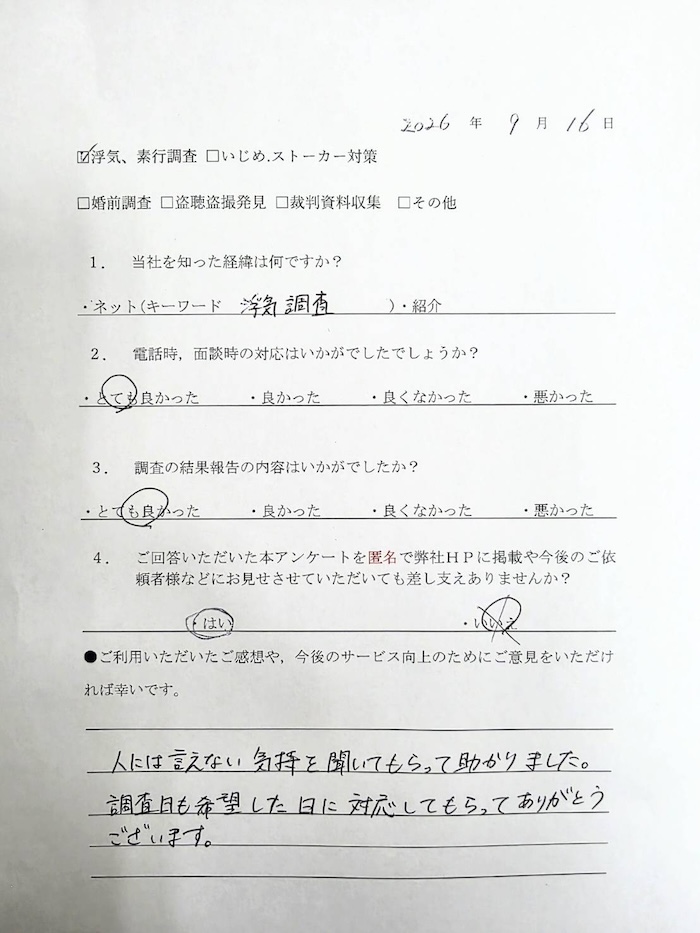 2026 年 9 月 16 日
☑浮気、素行調査 □いじめ.ストーカー対策
□婚前調査 □盗聴盗撮発見 □裁判資料収集 □その他
1. 当社を知った経緯は何ですか？
・ネット(キーワード 浮気調査 )・紹介
2. 電話時，面談時の対応はいかがでしたでしょうか？
・とても良かった ・良かった ・良くなかった ・悪かった
3. 調査の結果報告の内容はいかがでしたか？
・とても良かった ・良かった ・良くなかった ・悪かった
4. ご回答いただいた本アンケートを匿名で弊社ＨＰに掲載や今後のご依
頼者様などにお見せさせていただいても差し支えありませんか？
・はい ・いいえ
●ご利用いただいたご感想や，今後のサービス向上のためにご意見をいただけ
れば幸いです。
人には言えない気持を聞いてもらって助かりました。
調査日も希望した日に対応してもらってありがとう
ございます。